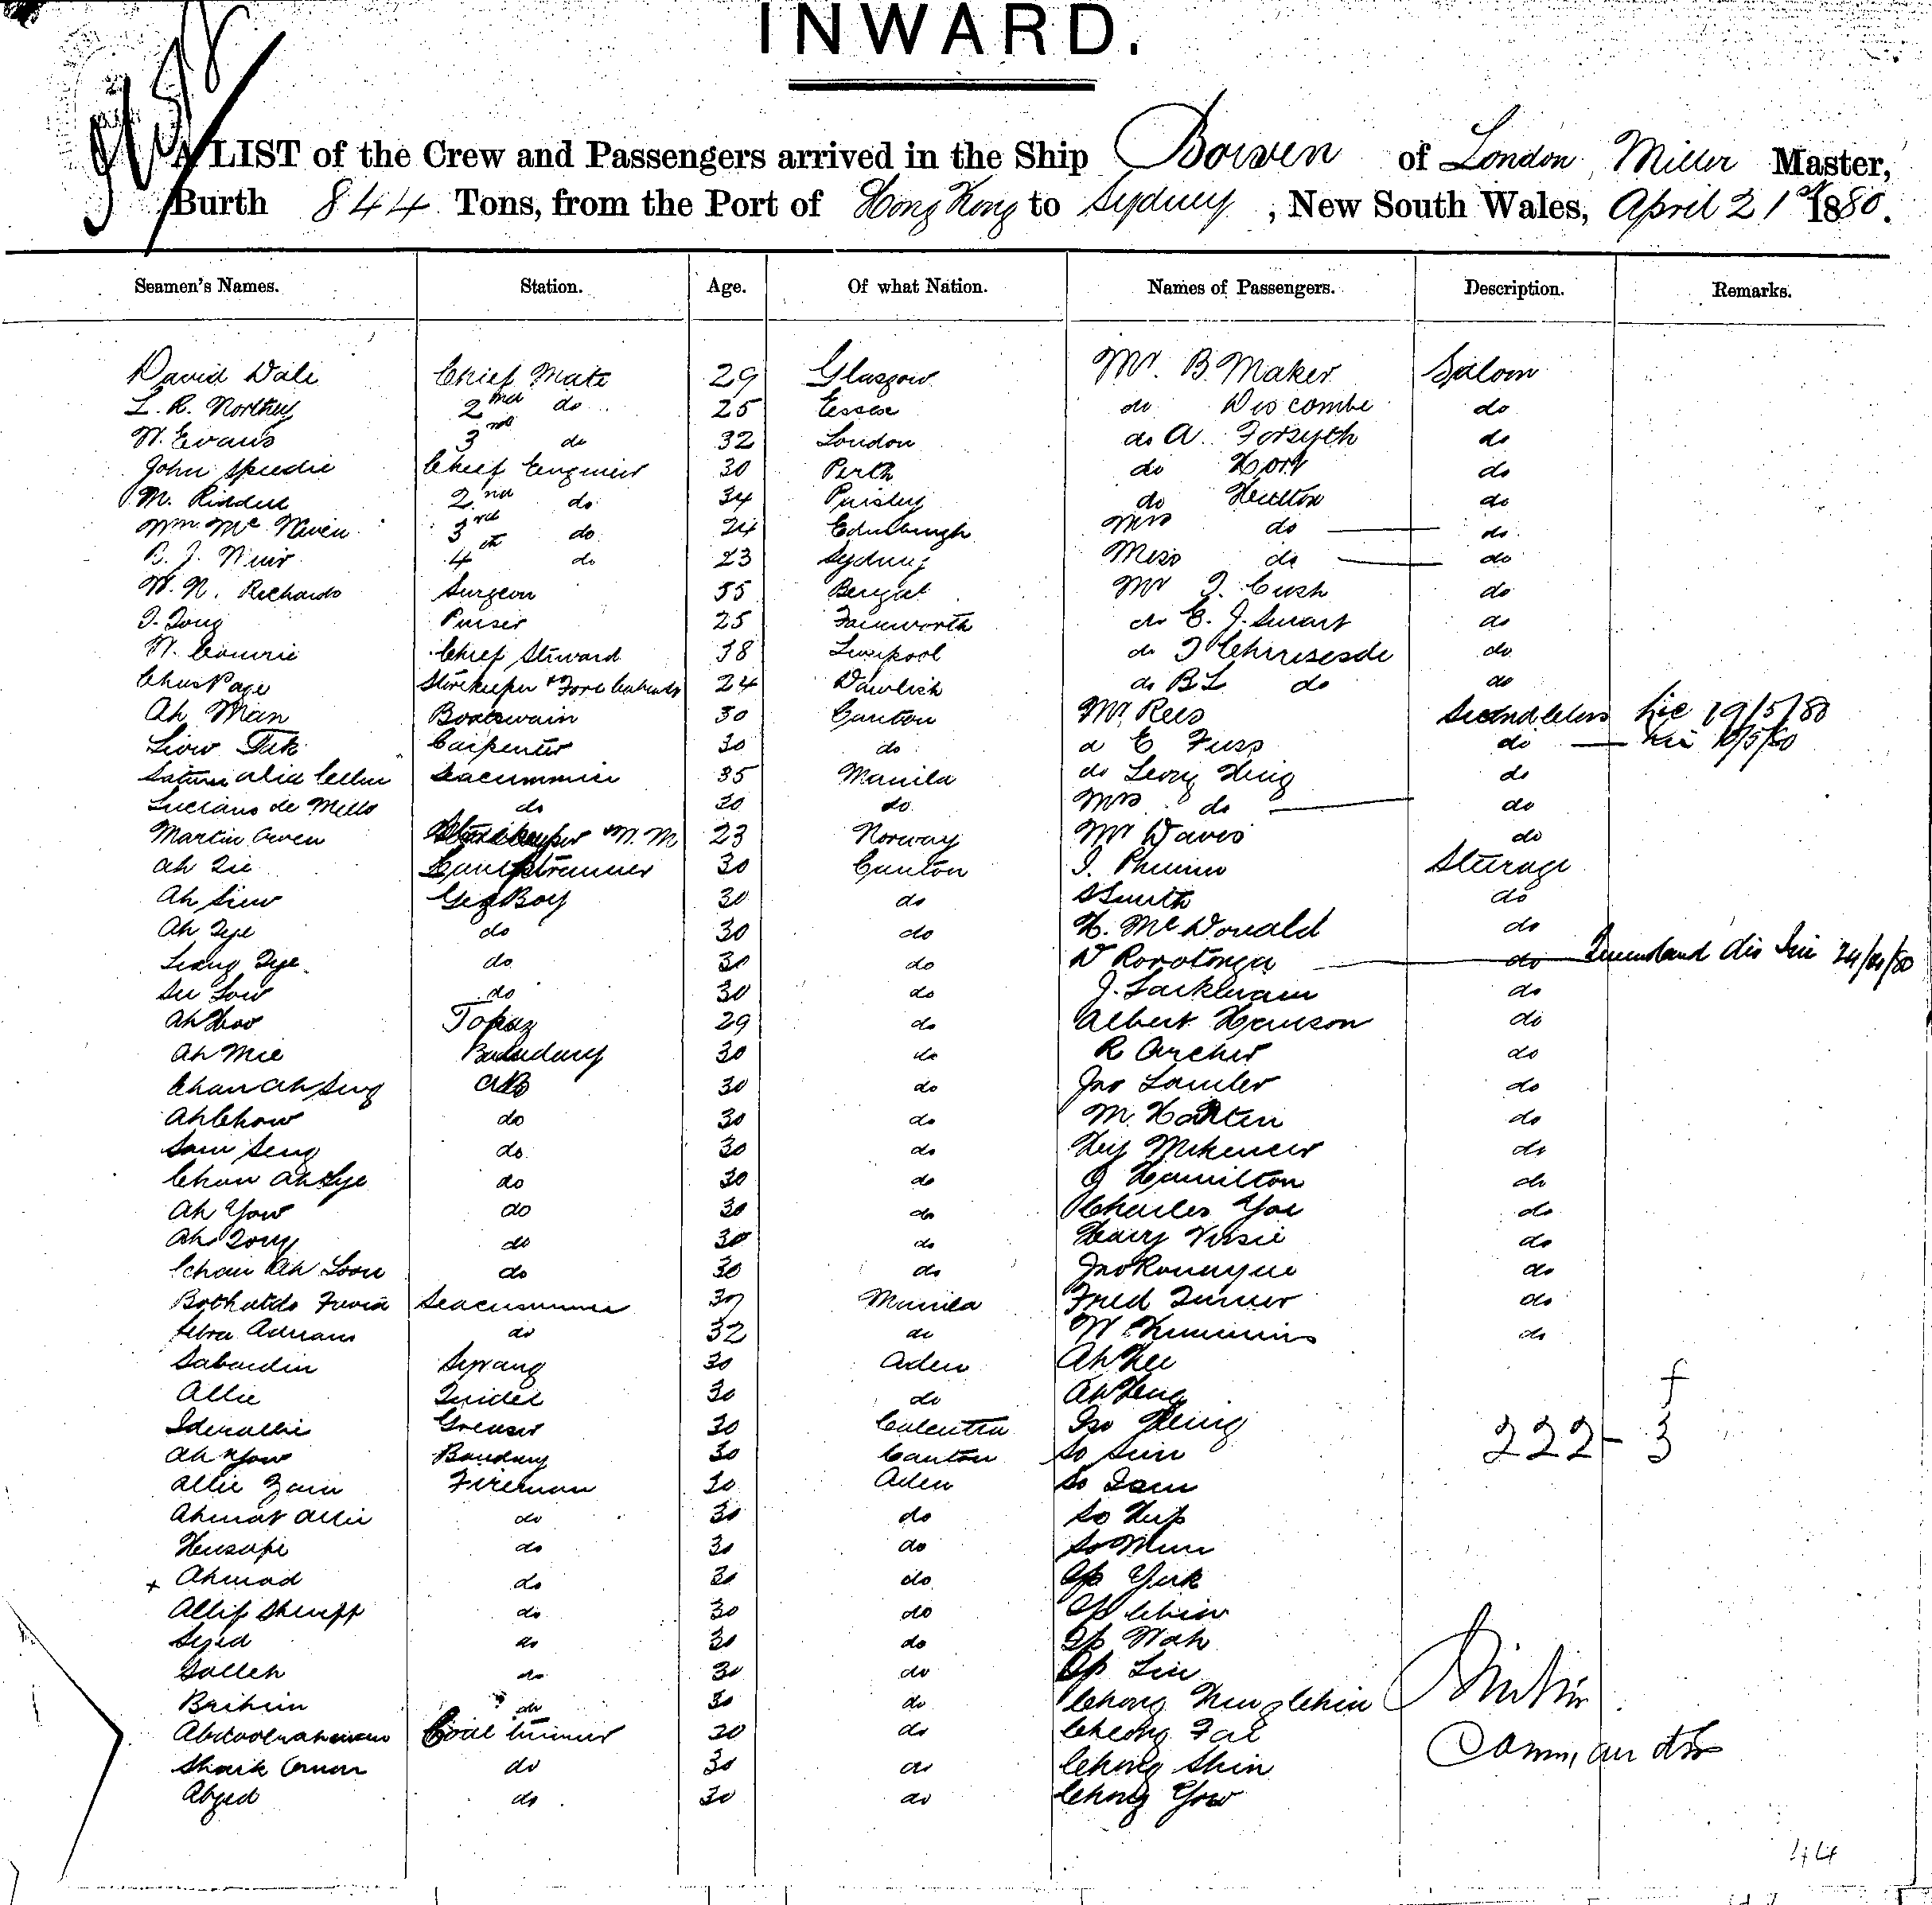 INWARD.
A LIST of the Crew and Passengers arrived in the Ship Bowen of London, Miller Master,
Burth 844 Tons, from the Port of Hong Kong to Sydney, New South Wales, April 21st 1880.
Seamen's Names. Station. Age. Of what Nation. Names of Passengers. Description. Remarks.
David Dale Chief Mate 29 Glasgow Mr. B. Maker Saloon
L. R. Northey 2nd do 25 Essex do Wiscombe do
W. Evans 3rd do 32 London do A. Forsyth do
John Speedie Chief Engineer 30 Perth do Hort do
M. Riddell 2nd do 34 Paisley do Hutton do
Wm Mc Niven 3rd do 24 Edinburgh Mrs do do
B. J. Muir 4th do 23 Sydney Miss do do
W. N. Richards Surgeon 55 Bengal Mr J. Cush do
J. Tong Purser 25 do E. J. Smart do
W. Cowrie Chief Steward 38 Liverpool do J do
Chas Page Storekeeper & Fore Cabin 24 Dawlish do B L do do
Ah Man Boatswain 30 Canton Mr. Rees Second Class 19/5/80
Liow Tak Carpenter 30 do E Fuss do
35 Manila do Leong Hing do
Luciano de Mello do 30 do Mrs do do
Martin Owen Storekeeper 23 Norway Mr Davis do
Ah Lamptrimmer 30 Canton J. Steerage
Ah Siew Boy 30 do Smith do
Ah do 30 do H. McDonald do
Leang do 30 do W Rorotonga do 24/4/80
See Low do 30 do J. do
Ah Hoo Topaz 29 do Albert Hanson do
Ah Mee 30 do R Archer do
Chan Ah Sing AB 30 do Jno Lawler do
Ah Chow do 30 do M. Harten do
Sam Seng do 30 do do
Chan Ah Lye do 30 do J Hamilton do
Ah Yow do 30 do Charles Yae do
Ah Tong do 30 do Harry do
Chan Ah Loon do 30 do Jno do
Seacunnie Manila Fred Turner do
Adriano do 32 do W do
Sabardin Serang 30 Aden Ah Hee
Allie Tindel 30 do Ah Heng
Greaser 30 Calcutta So Hing
Ah Yow 30 Canton So Sun
222 - 3
Allie Zain Fireman 30 Aden So Sam
Ahmat Allie do 30 do So Hup
do 30 do So Mun
+ Ahmad do 30 do Ap Yuk
Allif Sheriff do 30 do Ap Chin
Syed do 30 do Ap Wah
Salleh do 30 do Ap Lin
do 30 do Chong
Abdoolrahman Coal trimmer 30 do Cheong Fat
Shaik Omar do 30 do Chong Shin
Abzed do 30 do Chong Yow
Commander